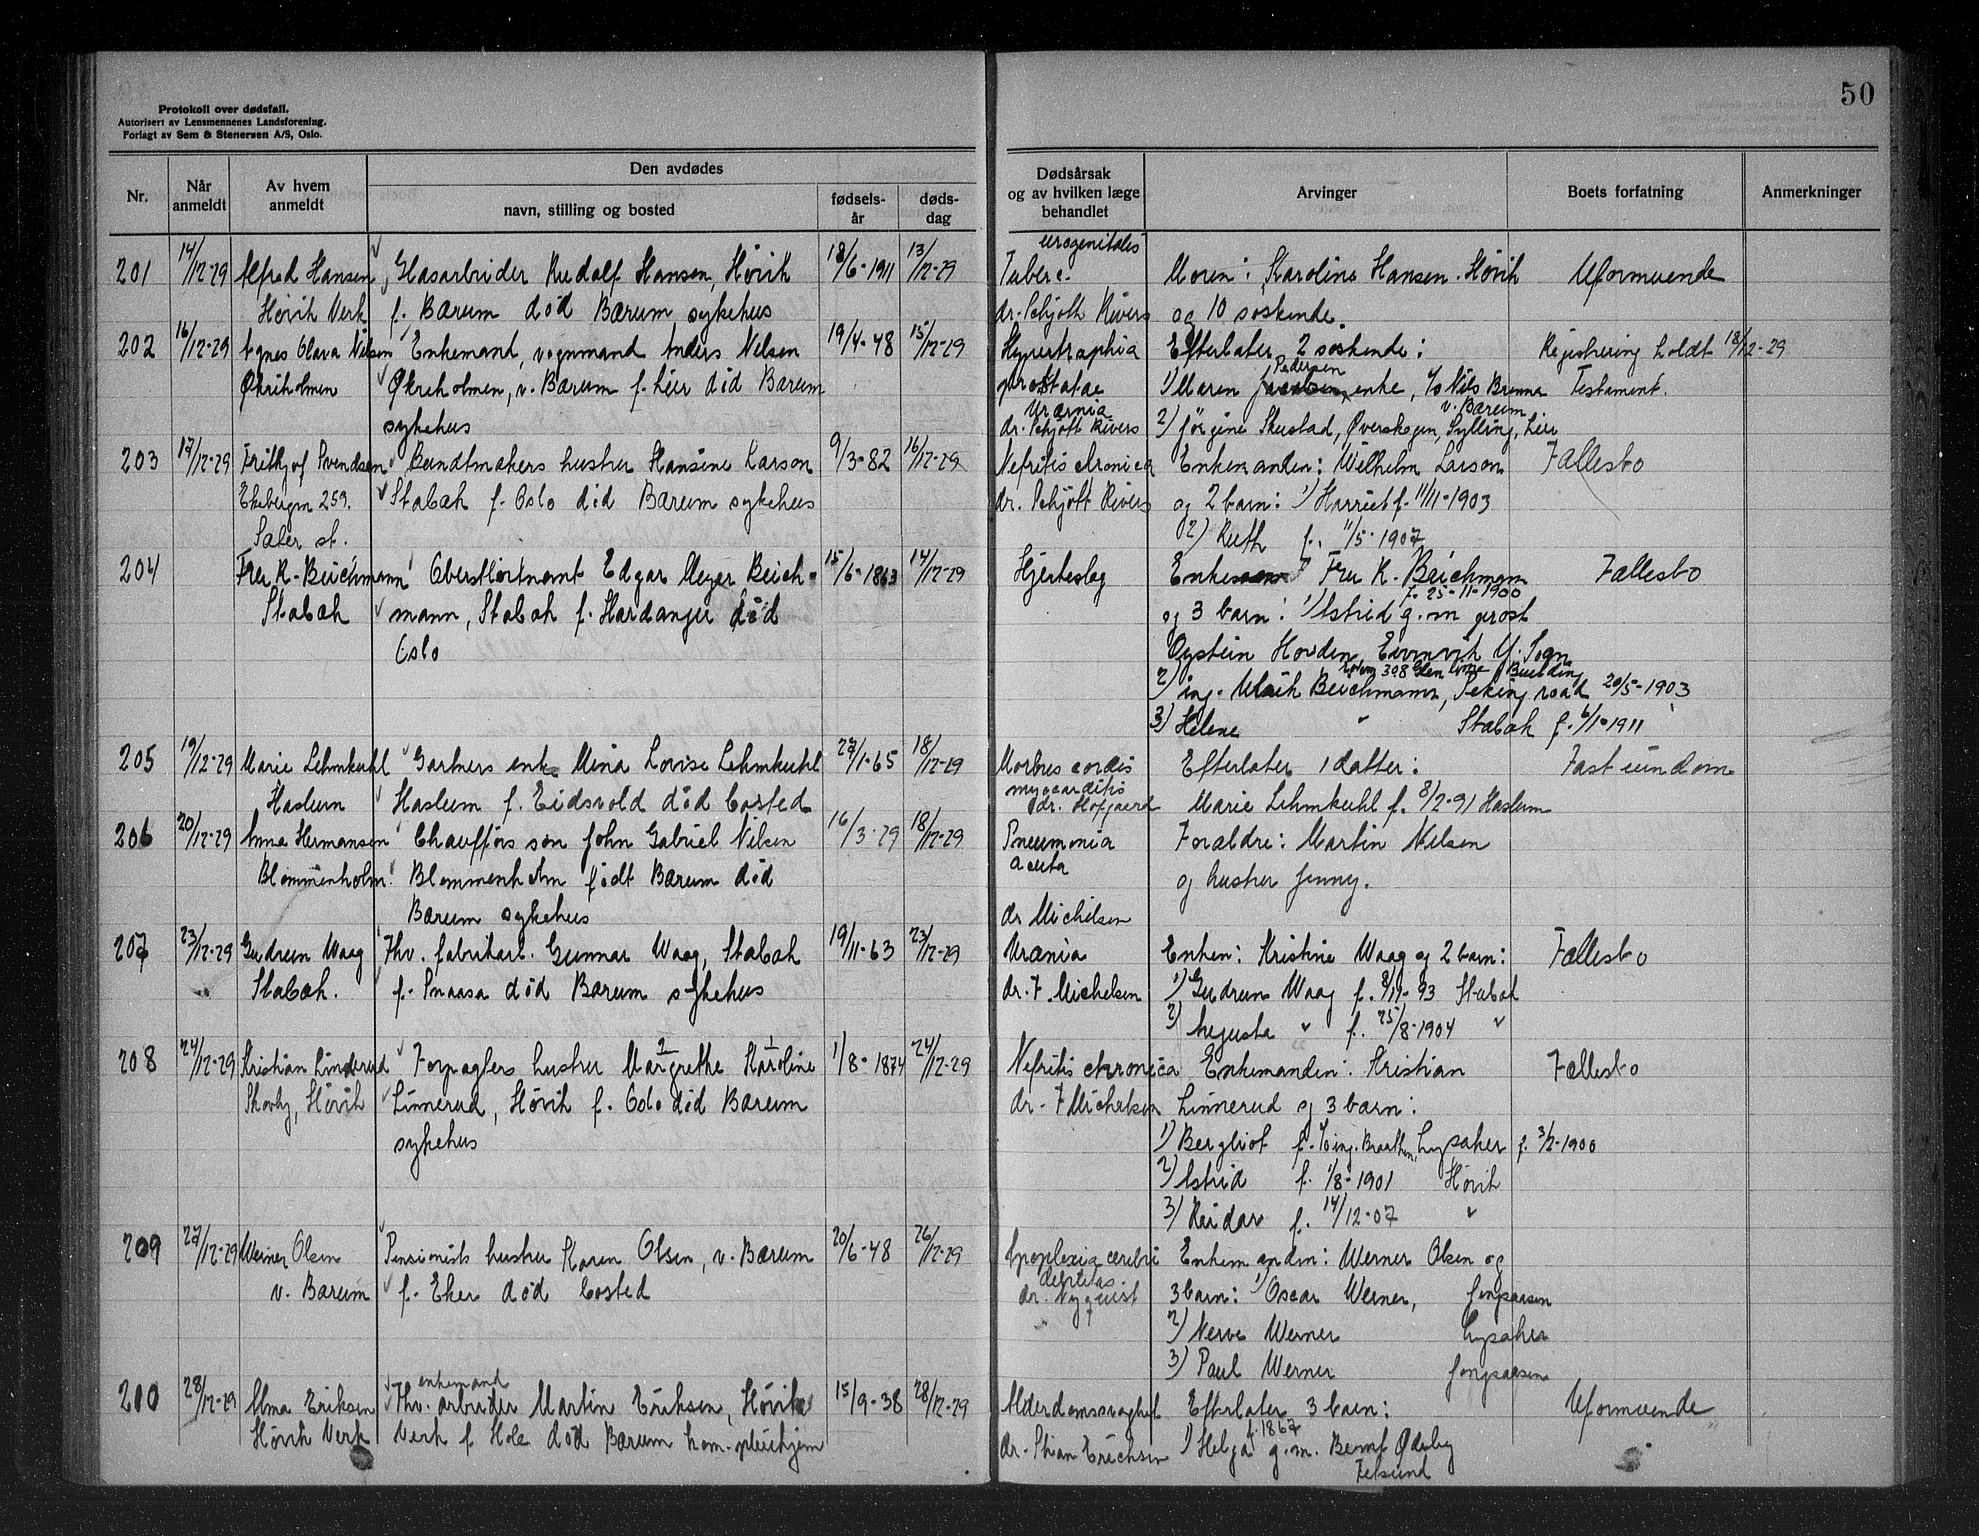 Protokoll over dødsfall.
Autorisert av Lensmennenes Landsforening.
Forlagt av Sem & Stenersen A/S, Oslo.
50
Nr.
Når anmeldt
Av hvem anmeldt
Den avdødes
navn, stilling og bosted
fødselsår
dødsdag
Dødsårsak og av hvilken læge behandlet
Arvinger
Boets forfatning
Anmerkninger
201 14/12-29 Alfred Hansen Glasarbeider Rudolf Hansen, Høvik 18/6-1911 13/12-29 Tuberc. urogenitales Moren: Karoline Hansen. Høvik Uformuende
Høvik Verk f. Bærum död Bærum sykehus dr. Schjøth Rivers og 10 søskende.
202 16/12-29 Agnes Olava Nilsen Enkemand, vognmand Anders Nilsen 19/4-48 15/12-29 Hypertrophia Efterlater 2 søskende: Registrering holdt 18/12-29
Økriholmen Økreholmen, v. Bærum f. Lier död Bærum prostatae 1) Maren Pedersen, enke, Nils Brenna Testament.
sykehus Uræmia v. Bærum
dr. Schjött Rivers 2) Jörgine Skustad, Øverskogen, Sylling, Lier
203 17/12-29 Frithjof Svendsen Bundtmakers hustru Hansine Larson 9/3-82 16/12-29 Nefritis chronica Enkemanden: Wilhelm Larson Fællesbo
Ekebergvn 259. Stabæk f. Oslo död Bærum sykehus dr. Schjött Rivers og 2 barn: 1) Harriet f. 11/11-1903
Sæter st. 2) Ruth f. 11/5-1907
204 Fru K. Beichmann Oberstløitnant Edgar Meyer Beich- 15/6-1863 14/12-29 Hjerteslag Enken Fru K. Beichmann Fællesbo
Stabæk mann, Stabæk f. Hardanger död og 3 barn: 1) Astrid g.m. prost f. 25-11-1900
Oslo Øystein Hovden, Eivinvik Y. Sogn
2) ing. Ulrik Beichmann, Peking road 20/5-1903
Room 308 Glen Line Building
3) Helene " Stabæk f. 6/1-1911
205 19/12-29 Marie Lehmkuhl Gartners enke Mina Lovise Lehmkuhl 27/1-65 18/12-29 Morbus cordis Efterlater 1 datter: Fast eiendom
Haslum Haslum f. Eidsvold död bosted myocarditis
dr. Hofgaard Marie Lehmkuhl f. 8/2-91 Haslum
206 20/12-29 Anna Hermansen Chaufførs søn John Gabriel Nilsen 16/3-29 18/12-29 Pneumonia Forældre: Martin Nilsen
Blommenholm Blommenholm født Bærum död acuta og hustru Jenny.
Bærum sykehus dr Michelsen
207 23/12-29 Gudrun Waag Fhv. fabrikarb. Gunnar Waag, Stabæk 19/11-63 23/12-29 Uræmia Enken: Kristine Waag og 2 barn: Fællesbo
Stabæk. f. Snaasa död Bærum sykehus dr. F. Michelsen 1) Gudrun Waag f. 8/11-93 Stabæk
2) Augusta " f. 25/8-1904 "
208 24/12-29 Kristian Linnerud Forpagters hustru Margrethe Karoline 1/8-1874 24/12-29 Nefritis chronica Enkemanden: Kristian Fællesbo
Skovly, Høvik Linnerud, Høvik f. Oslo död Bærum dr. F Michelsen Linnerud og 3 barn:
sykehus
1) Bergliot ing. Braathen, Lysaker f. 3/2-1900
2) Astrid f. 1/8-1901 Høvik
3) Reidar f. 14/12-07 "
209 27/12-29 Werner Olsen Pensionists hustru Karen Olsen, v. Bærum 20/6-48 26/12-29 Apoplexia cerebri Enkemanden: Werner Olsen og
v. Bærum f. Eker död bosted debilitas dr. Nyquist 3 barn: 1) Oscar Werner, Jongsaasen
2) Werner Lysaker
3) Paul Werner Jongsaasen
210 28/12-29 Alma Eriksen enkemand Fhv. arbeider Martin Eriksen, Høvik 15/9-38 28/12-29 Alderdomssvaghet Efterlater 3 barn: Uformuende
Høvik Verk Verk f. Hole død Bærum kom. pleiehjem dr. Stian Erichsen 1) Helga f. 1867 g.m. Bernt Ødeby